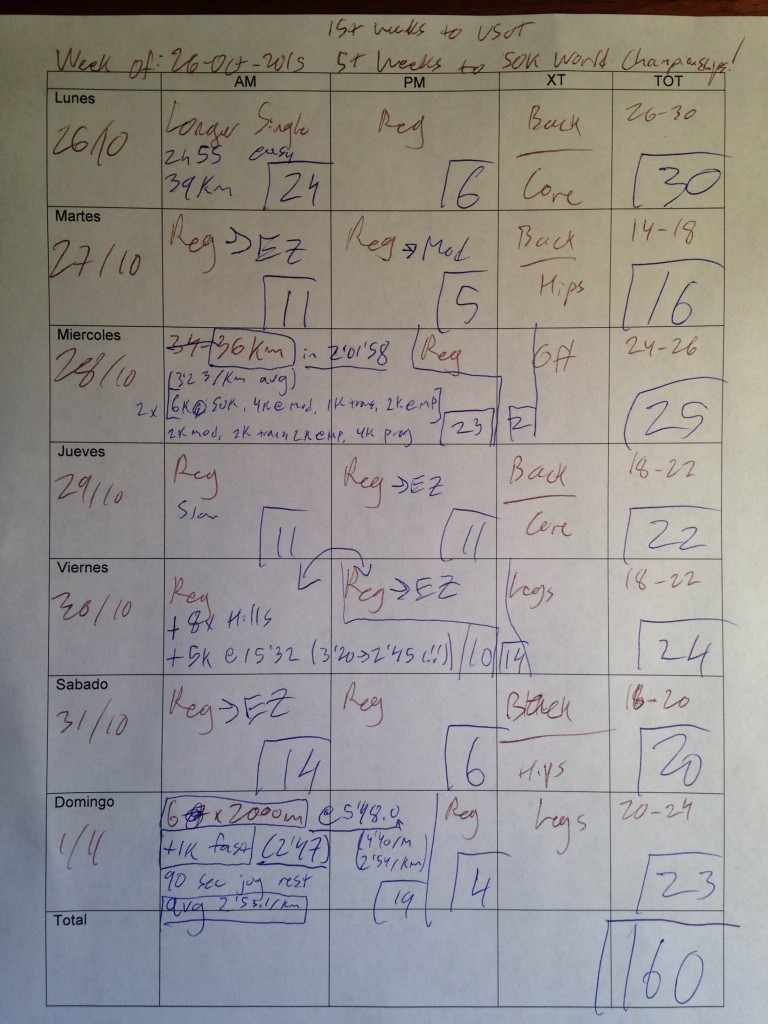 15+ weeks to USOT
Week of: 26-Oct-2015 5+ weeks to 50K World Championships!
AM PM XT TOT
Lunes
26/10
Longer Single
2h55 easy
39Km 24
Reg
6
Back
Core
26-30
30
Martes
27/10
Reg → EZ
11
Reg → Mod
5
Back
Hips
14-18
16
Miercoles
28/10
34-36Km in 2'01'58
(3'23/Km avg)
2x [6K @ 50K, 4K @ mod, 1K trans, 2K @ mp]
2K mod, 2K trans, 2K @ mp, 4K prog 23
Reg
2
Off
24-26
25
Jueves
29/10
Reg
Slow
11
Reg → EZ
11
Back
Core
18-22
22
Viernes
30/10
Reg
+ 8x Hills
+ 5K @ 15'32 (3'20→2'45 (!!)) 10
Reg → EZ
14
Legs
18-22
24
Sabado
31/10
Reg → EZ
14
Reg
6
Back
Hips
18-20
20
Domingo
1/4
6 x 2000m @ 5'48.0
+1K fast (2'47) (4'40/m
2'54/Km)
90 sec jog rest
avg 2'53.1/Km 19
Reg
4
Legs
20-24
23
Total
160